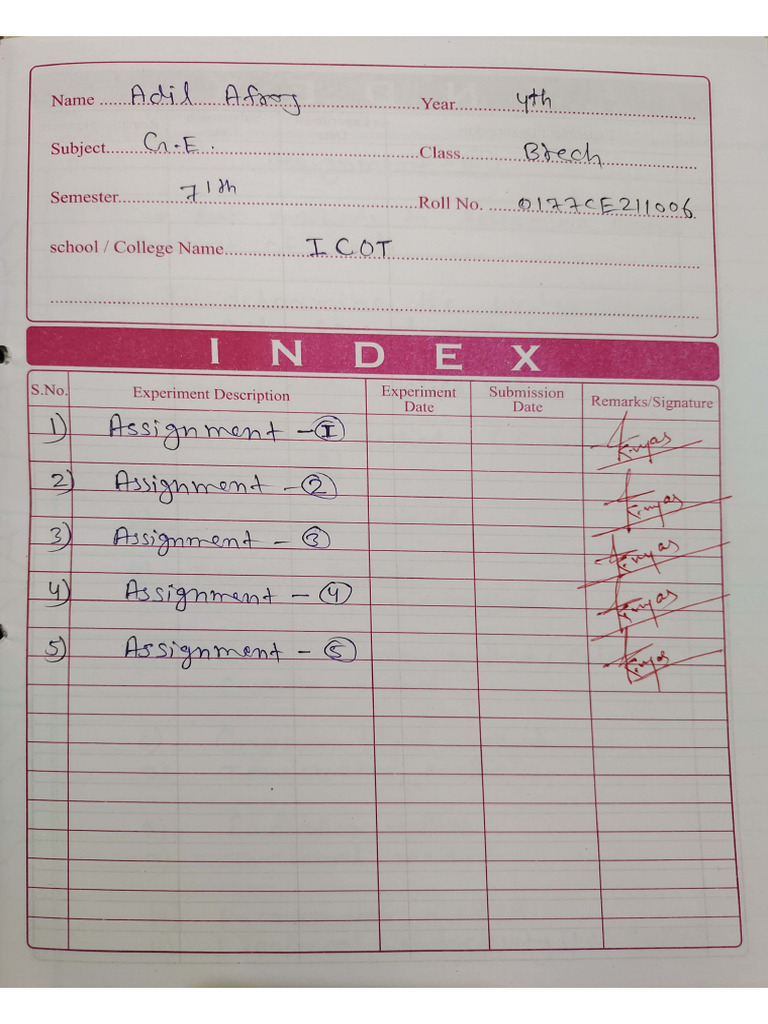 Name ... Adil Afroj ... Year ... 4th
Subject ... G.E. ... Class ... Btech
Semester ... 7th ... Roll No. ... 0177CE211006
school / College Name ... ICOT
INDEX
S.No. Experiment Description Experiment Date Submission Date Remarks/Signature
1) Assignment - I
2) Assignment - 2
3) Assignment - 3
4) Assignment - 4
5) Assignment - 5